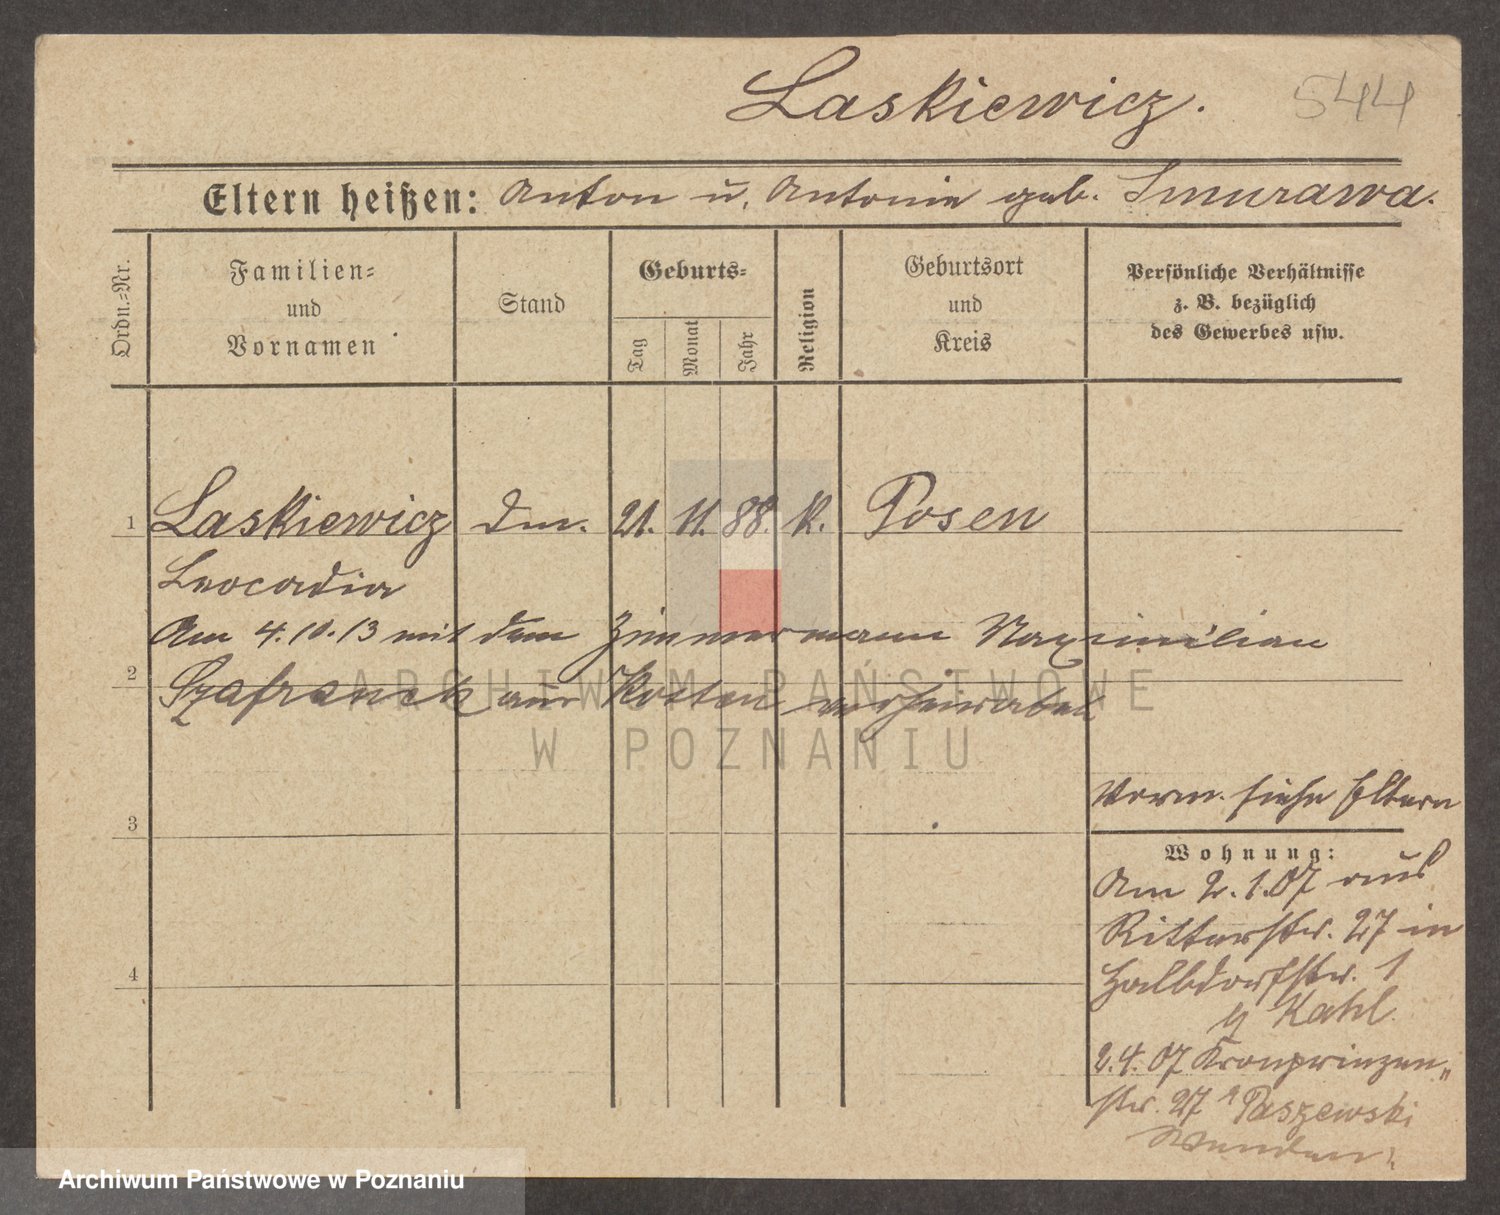 Laskiewicz.
544
Eltern heißen: Anton u. Antonie geb. Smurawa.
Ordn.-Nr.
Familien-
und
Vornamen
Stand
Geburts-
Tag
Monat
Jahr
Religion
Geburtsort
und
Kreis
Persönliche Verhältnisse
z. B. bezüglich
des Gewerbes usw.
1 Laskiewicz 21. 11. 88. k. Posen
Leocadia
Am 4.10.13 mit dem Zimmermann Maximilian
2 Szafranek aus Kosten verheiratet
3
Vorm. siehe Eltern
Wohnung:
Am 2.1.07 aus
Ritterstr. 27 in
Halbdorfstr. 1
Kahl.
4
2.4.07 Kronprinzen-
str. 27 Paszewski
ARCHIWUM PAŃSTWOWE
W POZNANIU
Archiwum Państwowe w Poznaniu